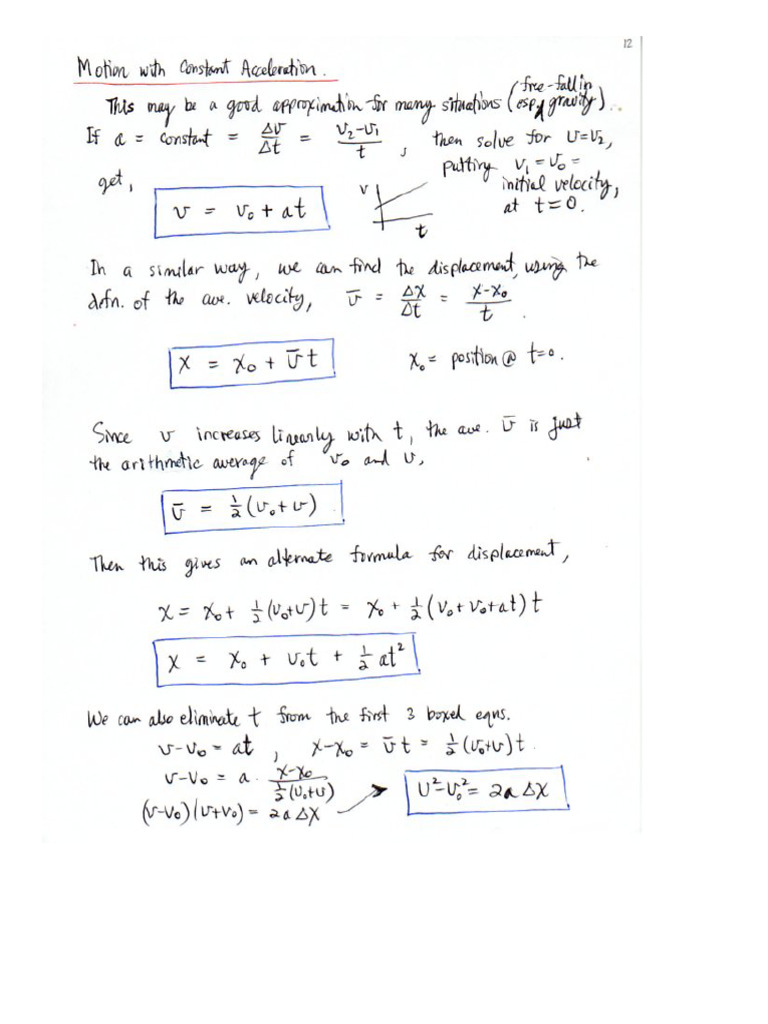 12
Motion with Constant Acceleration.
This may be a good approximation for many situations (esp. free-fall in gravity).
If a = constant = Δv/Δt = (v₂-v₁)/t , then solve for v=v₂,
putting v₁ = v₀ =
get,
initial velocity,
v = v₀ + at
at t=0.
v
t
In a similar way, we can find the displacement, using the
defn. of the ave. velocity, v̄ = Δx/Δt = (x-x₀)/t .
x = x₀ + v̄t
x₀ = position @ t=0.
Since v increases linearly with t, the ave. v̄ is just
the arithmetic average of v₀ and v,
v̄ = ½(v₀+v)
Then this gives an alternate formula for displacement,
x = x₀ + ½(v₀+v)t = x₀ + ½(v₀+v₀+at)t
x = x₀ + v₀t + ½at²
We can also eliminate t from the first 3 boxed eqns.
v-v₀ = at , x-x₀ = v̄t = ½(v₀+v)t.
v-v₀ = a · (x-x₀)/(½(v₀+v))
(v-v₀)(v+v₀) = 2aΔx
v²-v₀² = 2aΔx